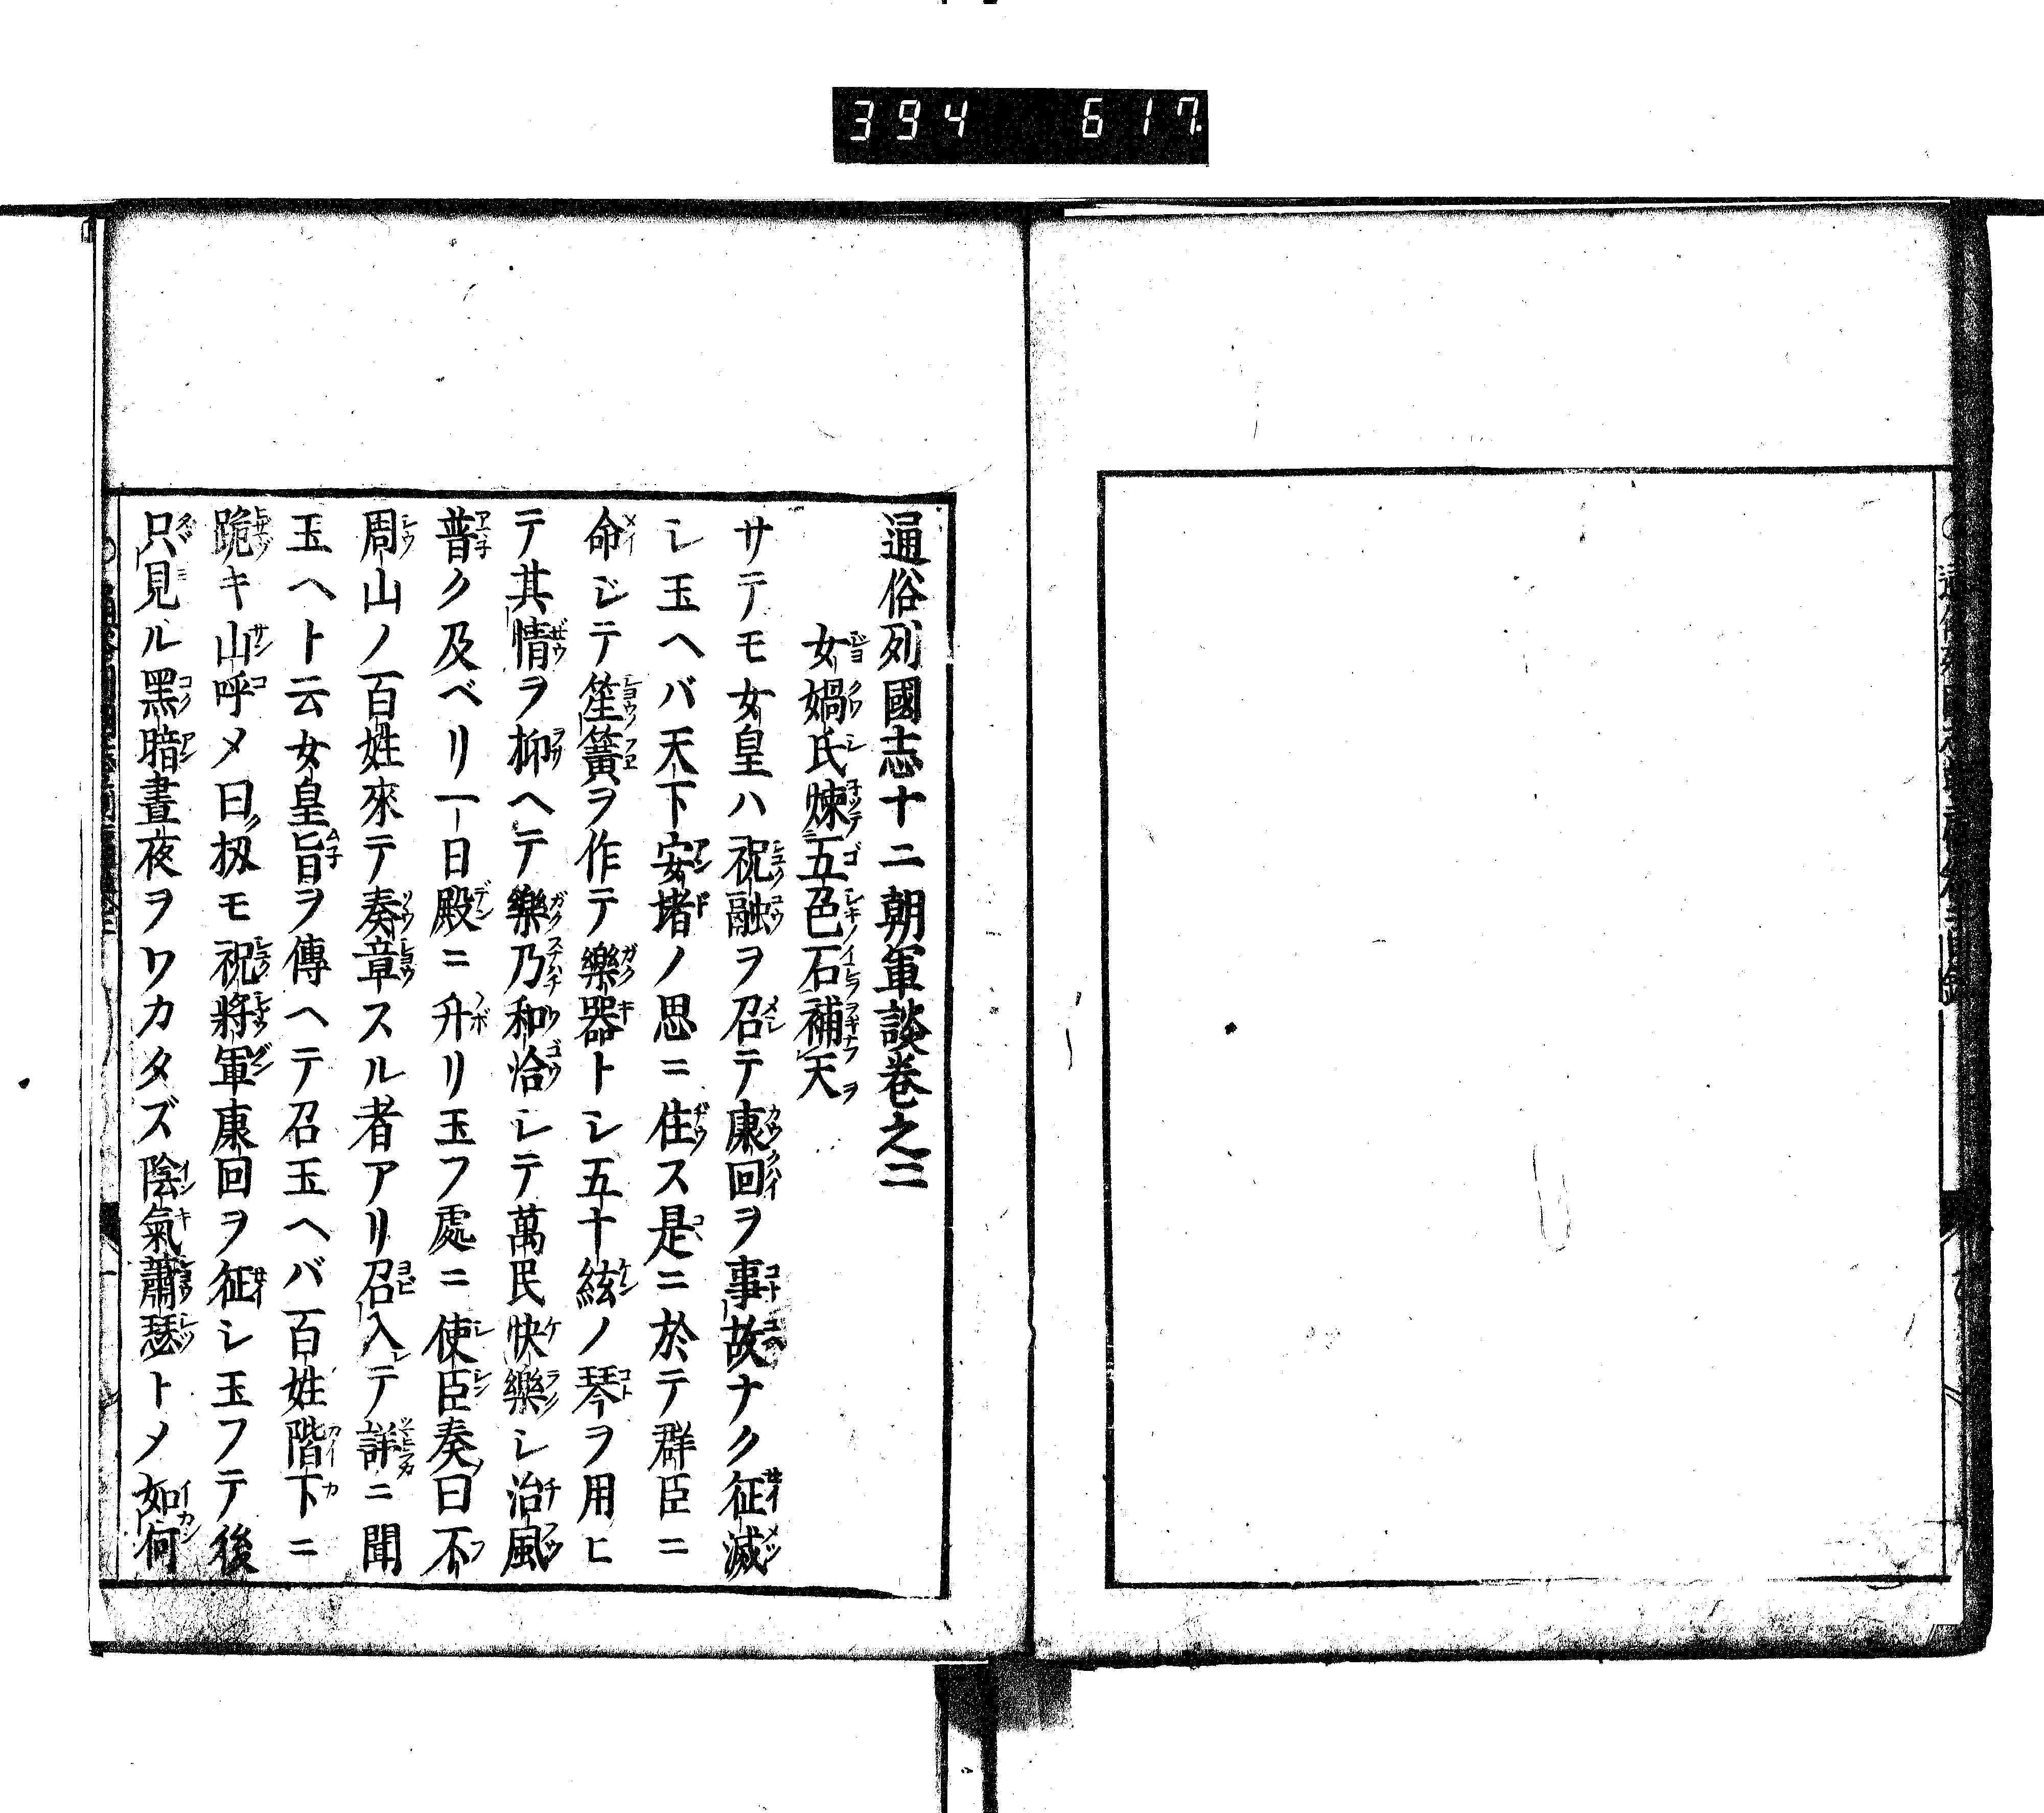 394 617
通俗列國志十二朝軍談卷之三
女媧氏煉五色石補天
サテモ女皇ハ祝融ヲ召テ康回ヲ事故ナク征滅
シ玉ヘバ天下安堵ノ思ニ住ス是ニ於テ群臣ニ
命ジテ笙簧ヲ作テ樂器トシ五十絃ノ琴ヲ用ヒ
テ其情ヲ抑ヘテ樂乃和洽シテ萬民快樂シ治風
普ク及ベリ一日殿ニ升リ玉フ處ニ使臣奏曰不
周山ノ百姓來テ奏章スル者アリ召入テ詳ニ聞
玉ヘト云女皇旨ヲ傳ヘテ召玉ヘバ百姓階下ニ
跪キ山呼メ曰扨モ祝將軍康回ヲ征シ玉フテ後
只見ル黑暗晝夜ヲワカタズ陰氣蕭瑟トメ如何